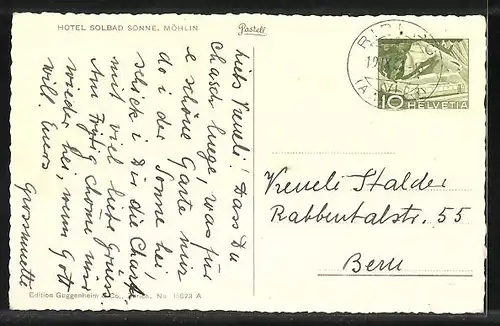 HOTEL SOLBAD SONNE, MÖHLIN
Pastell
Liebs Vreneli! Dass Du
chasch luege, was für
e schöne Garte mir
do i der Sonne hei,
schick i Dir die Charte
mit viel liebe Grüess.
Am Frytig chöme mir
wieder hei, wenn Gott
will. Euers
Grossmuetti
Edition Guggenheim & Co., Zürich. No 15623 A
10 HELVETIA
Vreneli Stalder
Rabbentalstr. 55
Bern